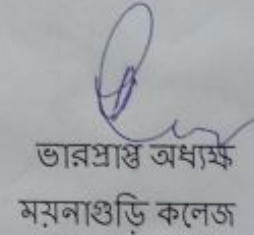 ভারপ্রাপ্ত অধ্যক্ষ
ময়নাগুড়ি কলেজ